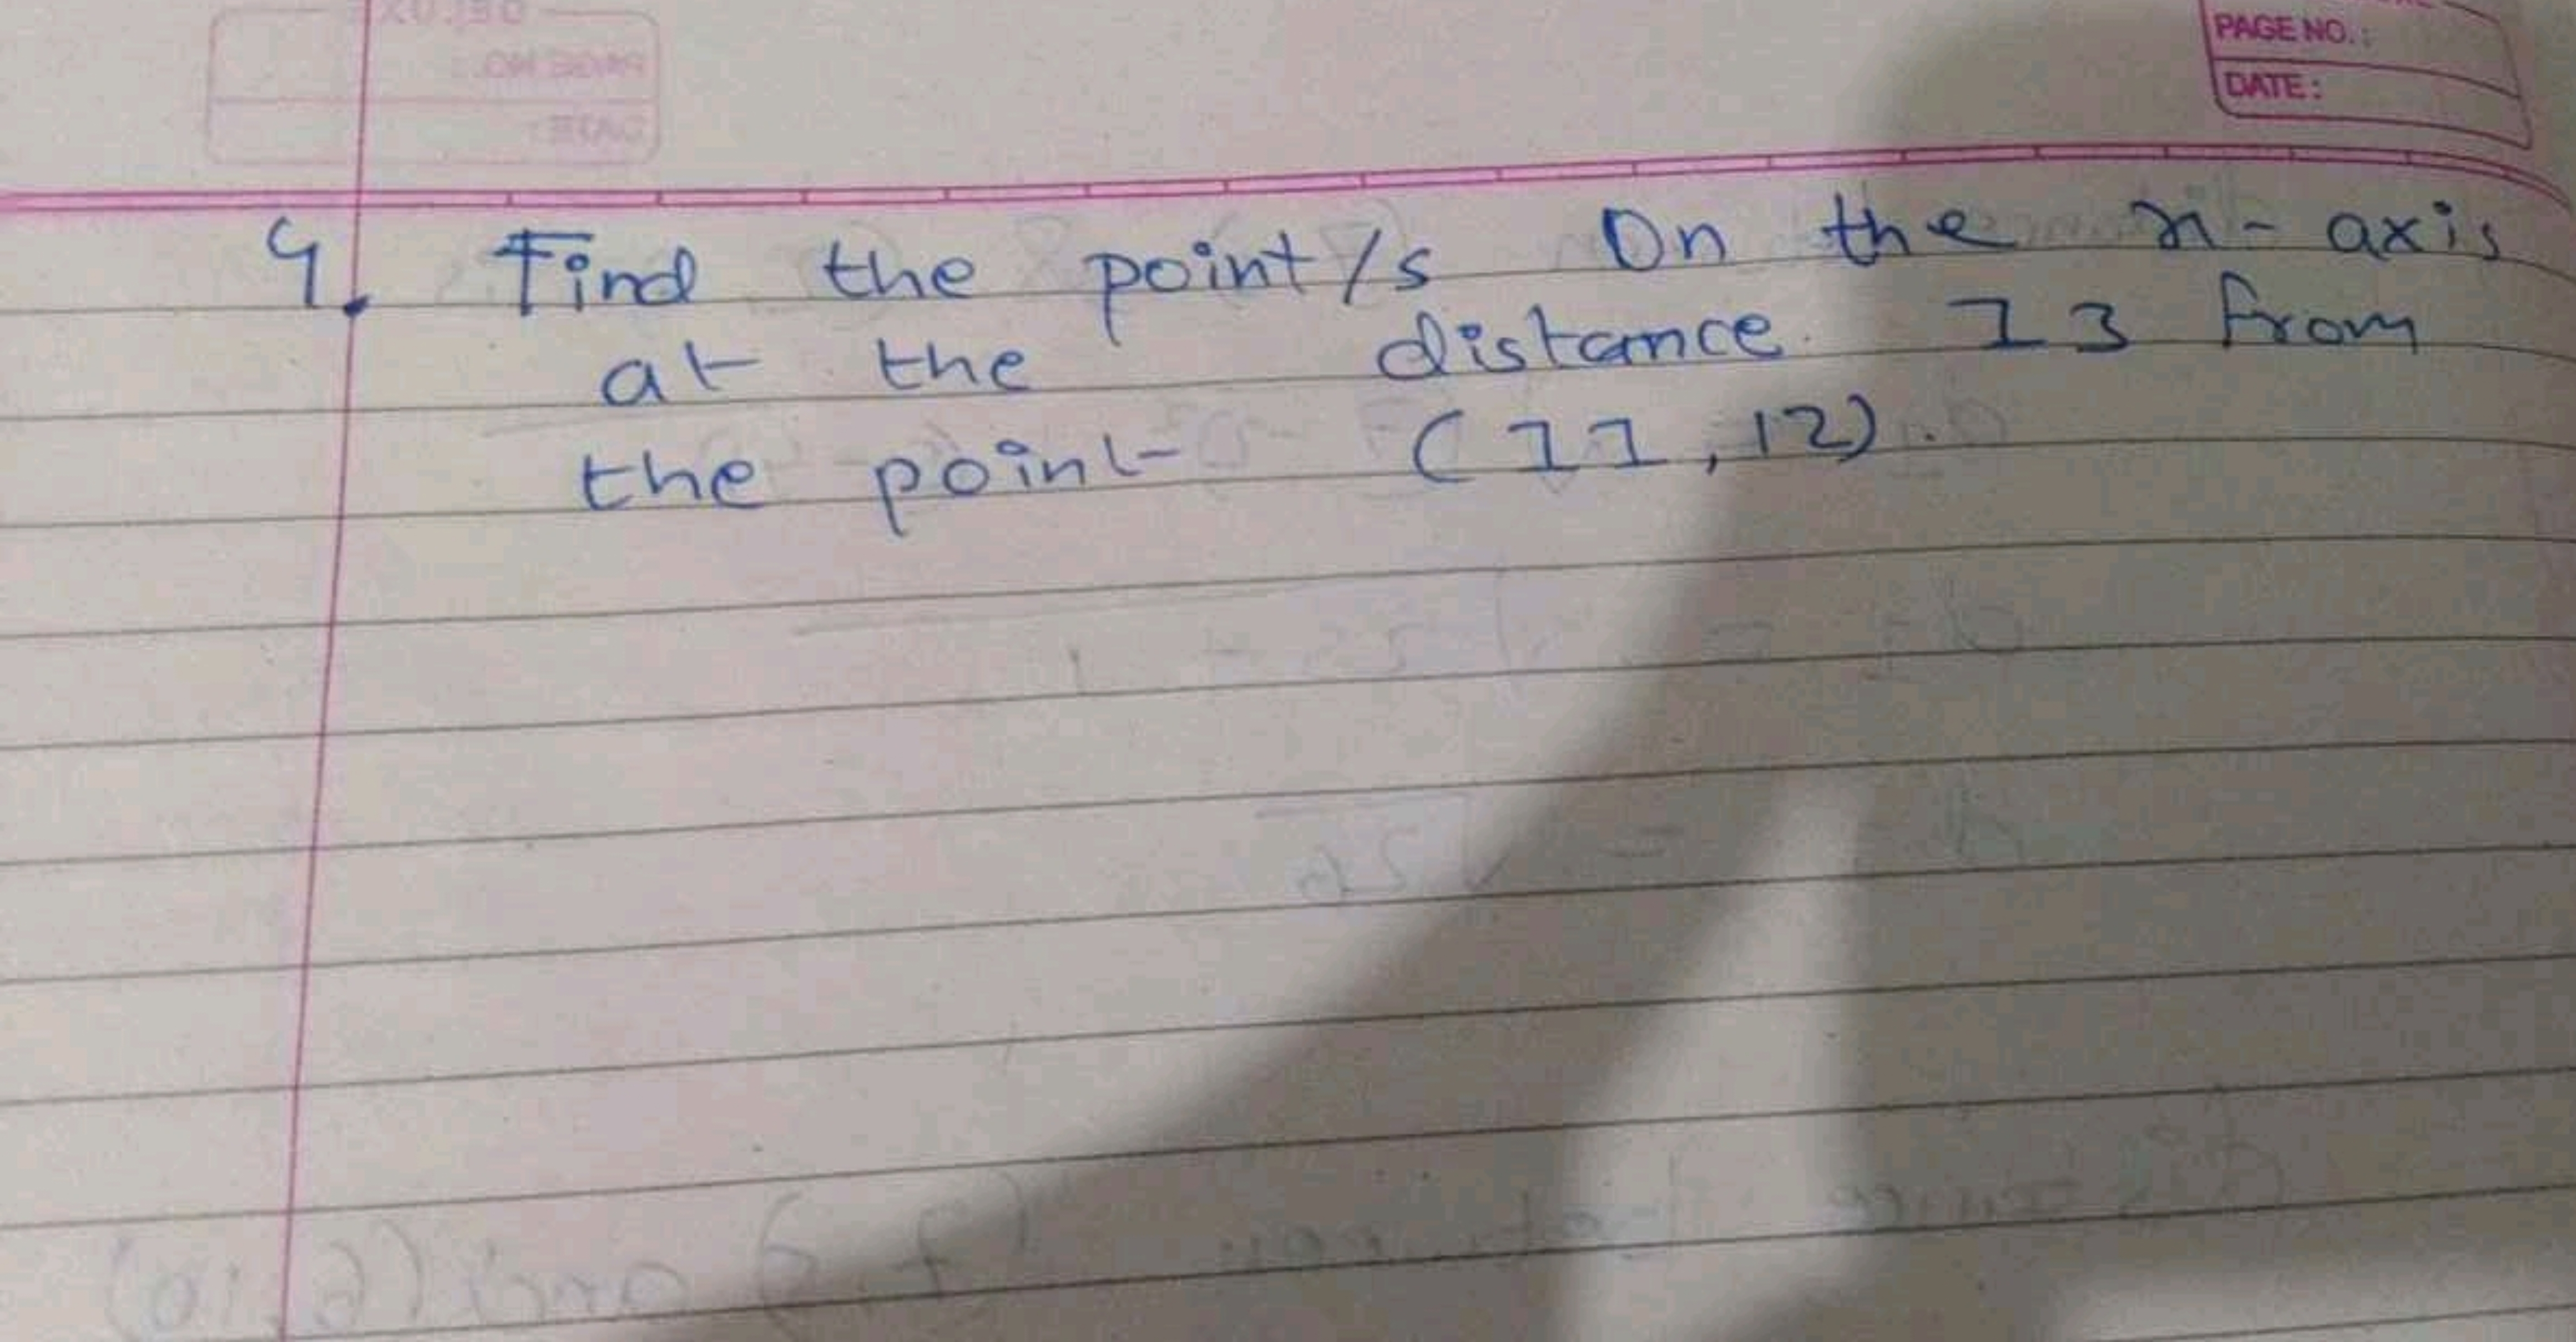 PAGE NO. :
DATE :
4. Find the point/s On the x-axis
at the distance 13 from
the point (11, 12).